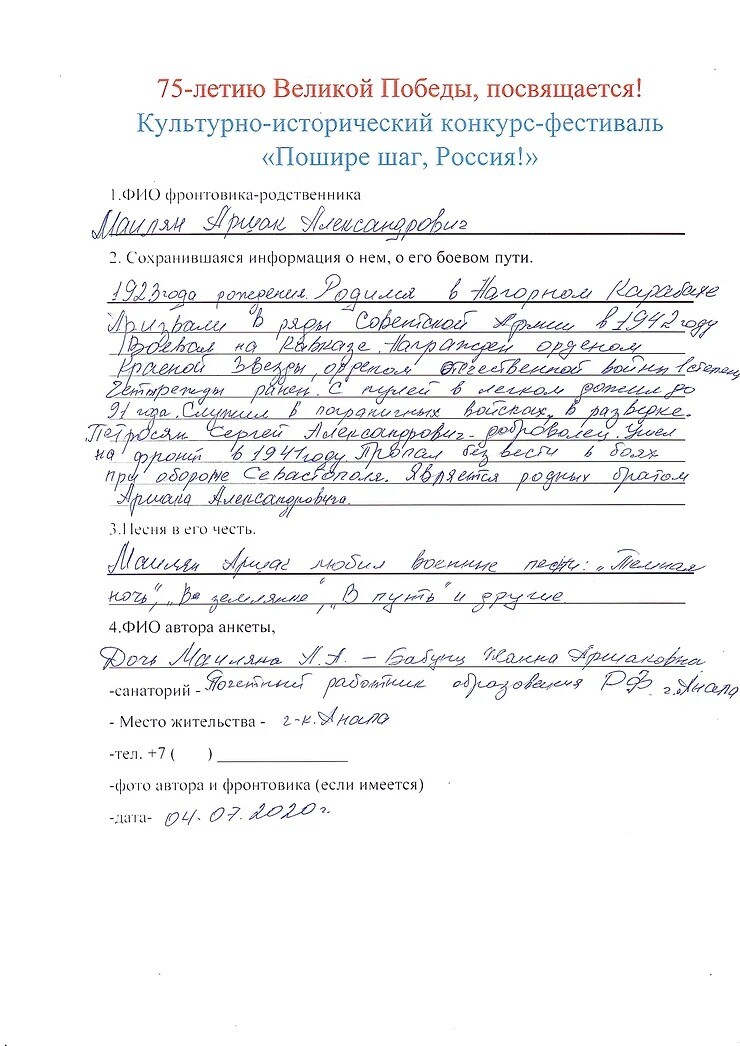 75-летию Великой Победы, посвящается!
Культурно-исторический конкурс-фестиваль
«Пошире шаг, Россия!»
1.ФИО фронтовика-родственника
Маилян Аршак Александрович
2. Сохранившаяся информация о нем, о его боевом пути.
1923 года рождения. Родился в Нагорном Карабахе
Призвали в ряды Советской Армии в 1942 году
Воевал на Кавказе. Награжден орденом
Красной Звезды, орденом Отечественной войны 1 степени
Четырежды ранен. С пулей в легком дожил до
91 года. Служил в пограничных войсках, в разведке.
Петросян Сергей Александрович - доброволец. Ушел
на фронт в 1941 году. Пропал без вести в боях
при обороне Севастополя. Является родных братом
Аршака Александровича.
3.Песня в его честь.
Маилян Аршак любил военные песни: „Темная
ночь", „В землянке", „В путь" и другие.
4.ФИО автора анкеты,
Дочь Маиляна А.А. – Бабунц Жанна Аршаковна
-санаторий - Почетный работник образования РФ. г.Анапа
- Место жительства - г-к. Анапа
-тел. +7 ( ) _______________
-фото автора и фронтовика (если имеется)
-дата- 04.07.2020г.